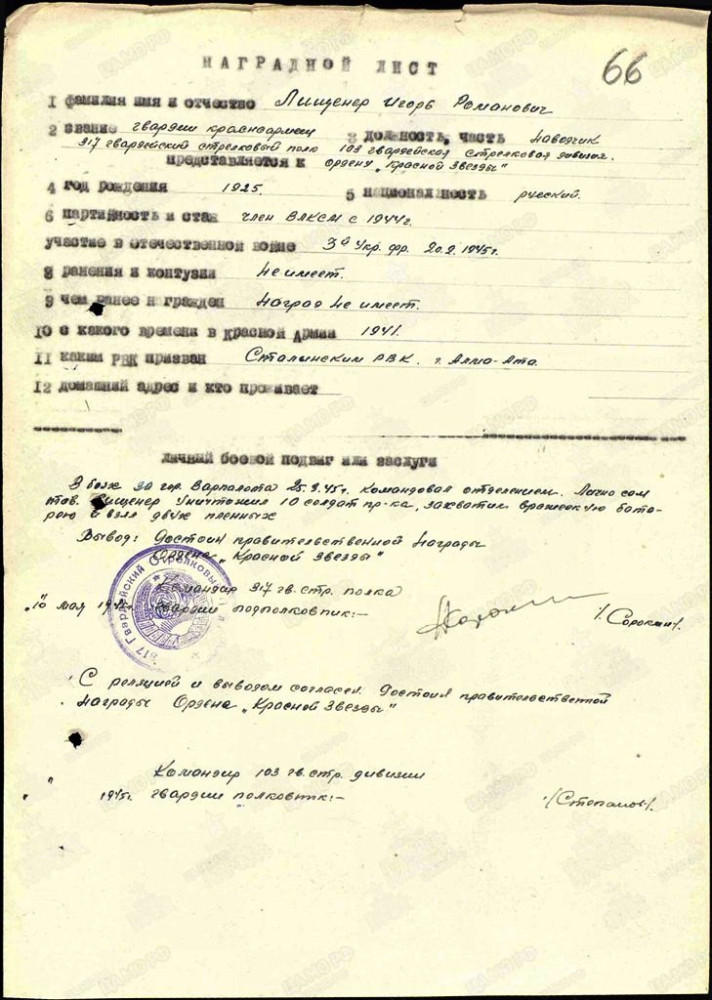 66
НАГРАДНОЙ ЛИСТ
1 фамилия имя и отчество Лищенер Игорь Романович
2 звание гвардии красноармеец 3 должность, часть наводчик
317 гвардейский стрелковый полк 103 гвардейская стрелковая дивизия.
представляется к ордену „Красной Звезды"
4 год рождения 1925. 5 национальность русский.
6 партийность и стаж член ВЛКСМ с 1944г.
участие в отечественной войне 3й Укр. фр. 20.2.1945г.
8 ранения и контузии Не имеет.
9 чем ранее награжден Наград Не имеет.
10 с какого времени в Красной Армии 1941.
11 каким РВК призван Сталинским РВК. г. Алма-Ата.
12 домашний адрес и кто проживает
личный боевой подвиг или заслуги
В боях за гор. Варпалота 25.3.45г. Командовал отделением. Лично сам
тов. Лищенер Уничтожил 10 солдат пр-ка, захватил вражескую бата-
рею и взял двух пленных
Вывод: Достоин правительственной Награды
Ордена „Красной Звезды"
Командир 317 гв. стр. полка
„10" мая 1945г. гвардии подполковник:- /Сорокин/.
317 Гвардейский Стрелковый
С реляцией и выводом согласен. Достоин правительственной
Награды Ордена „Красной Звезды"
Командир 103 гв. стр. дивизии
" 1945г. гвардии полковник:- /Степанов/.